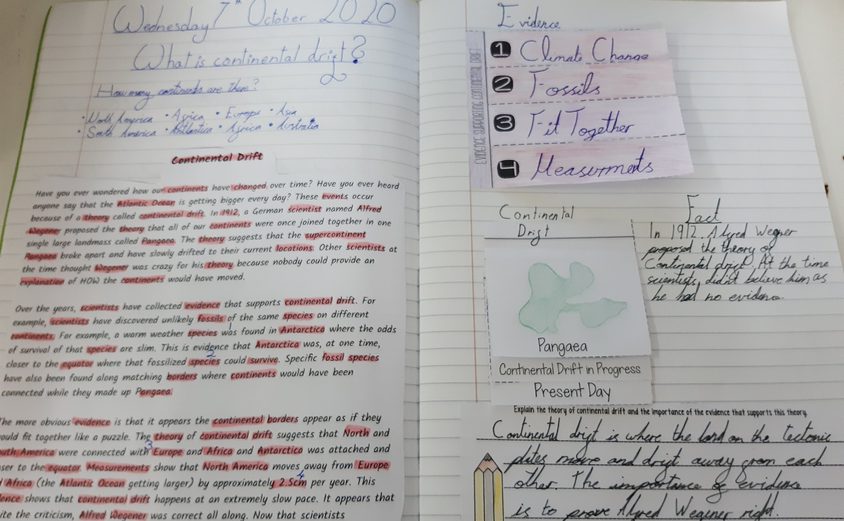 Wednesday 7th October 2020
What is continental drift?
How many continents are there?
• North America • Asica • Europe • Asia
• South America • Atlantica • Africa • Australia
Continental Drift
Have you ever wondered how our continents have changed over time? Have you ever heard
anyone say that the Atlantic Ocean is getting bigger every day? These events occur
because of a theory called continental drift. In 1912, a German scientist named Alfred
Wegener proposed the theory that all of our continents were once joined together in one
single large landmass called Pangaea. The theory suggests that the supercontinent
Pangaea broke apart and have slowly drifted to their current locations. Other scientists at
the time thought Wegener was crazy for his theory because nobody could provide an
explanation of HOW the continents would have moved.
Over the years, scientists have collected evidence that supports continental drift. For
example, scientists have discovered unlikely fossils of the same species on different
continents. For example, a warm weather species was found in Antarctica where the odds
1
of survival of that species are slim. This is evidence that Antarctica was, at one time,
2
closer to the equator where that fossilized species could survive. Specific fossil species
have also been found along matching borders where continents would have been
connected while they made up Pangaea.
The more obvious evidence is that it appears the continental borders appear as if they
ould fit together like a puzzle. The theory of continental drift suggests that North and
3
outh America were connected with Europe and Africa and Antarctica was attached and
ser to the equator. Measurements show that North America moves away from Europe
4
d Africa (the Atlantic Ocean getting larger) by approximately 2.5cm per year. This
ence shows that continental drift happens at an extremely slow pace. It appears that
ite the criticism, Alfred Wegener was correct all along. Now that scientists
Evidence
EVIDENCE SUPPORTING CONTINENTAL DRIFT
1 Climate Change
2 Fossils
3 Fit Together
4 Measurments
Continental
Drift
Pangaea
Continental Drift in Progress
Present Day
Fact
In 1912. Alfred Wegner
proposed the theory of
Continental drift. At the time
scientists, didn't believe him as
he had no evidence.
Explain the theory of continental drift and the importance of the evidence that supports this theory.
Continental drift is where the land on the tectonic
plates move and drift away from each
other. The importance of evidence
is to prove Alfred Wegener right.